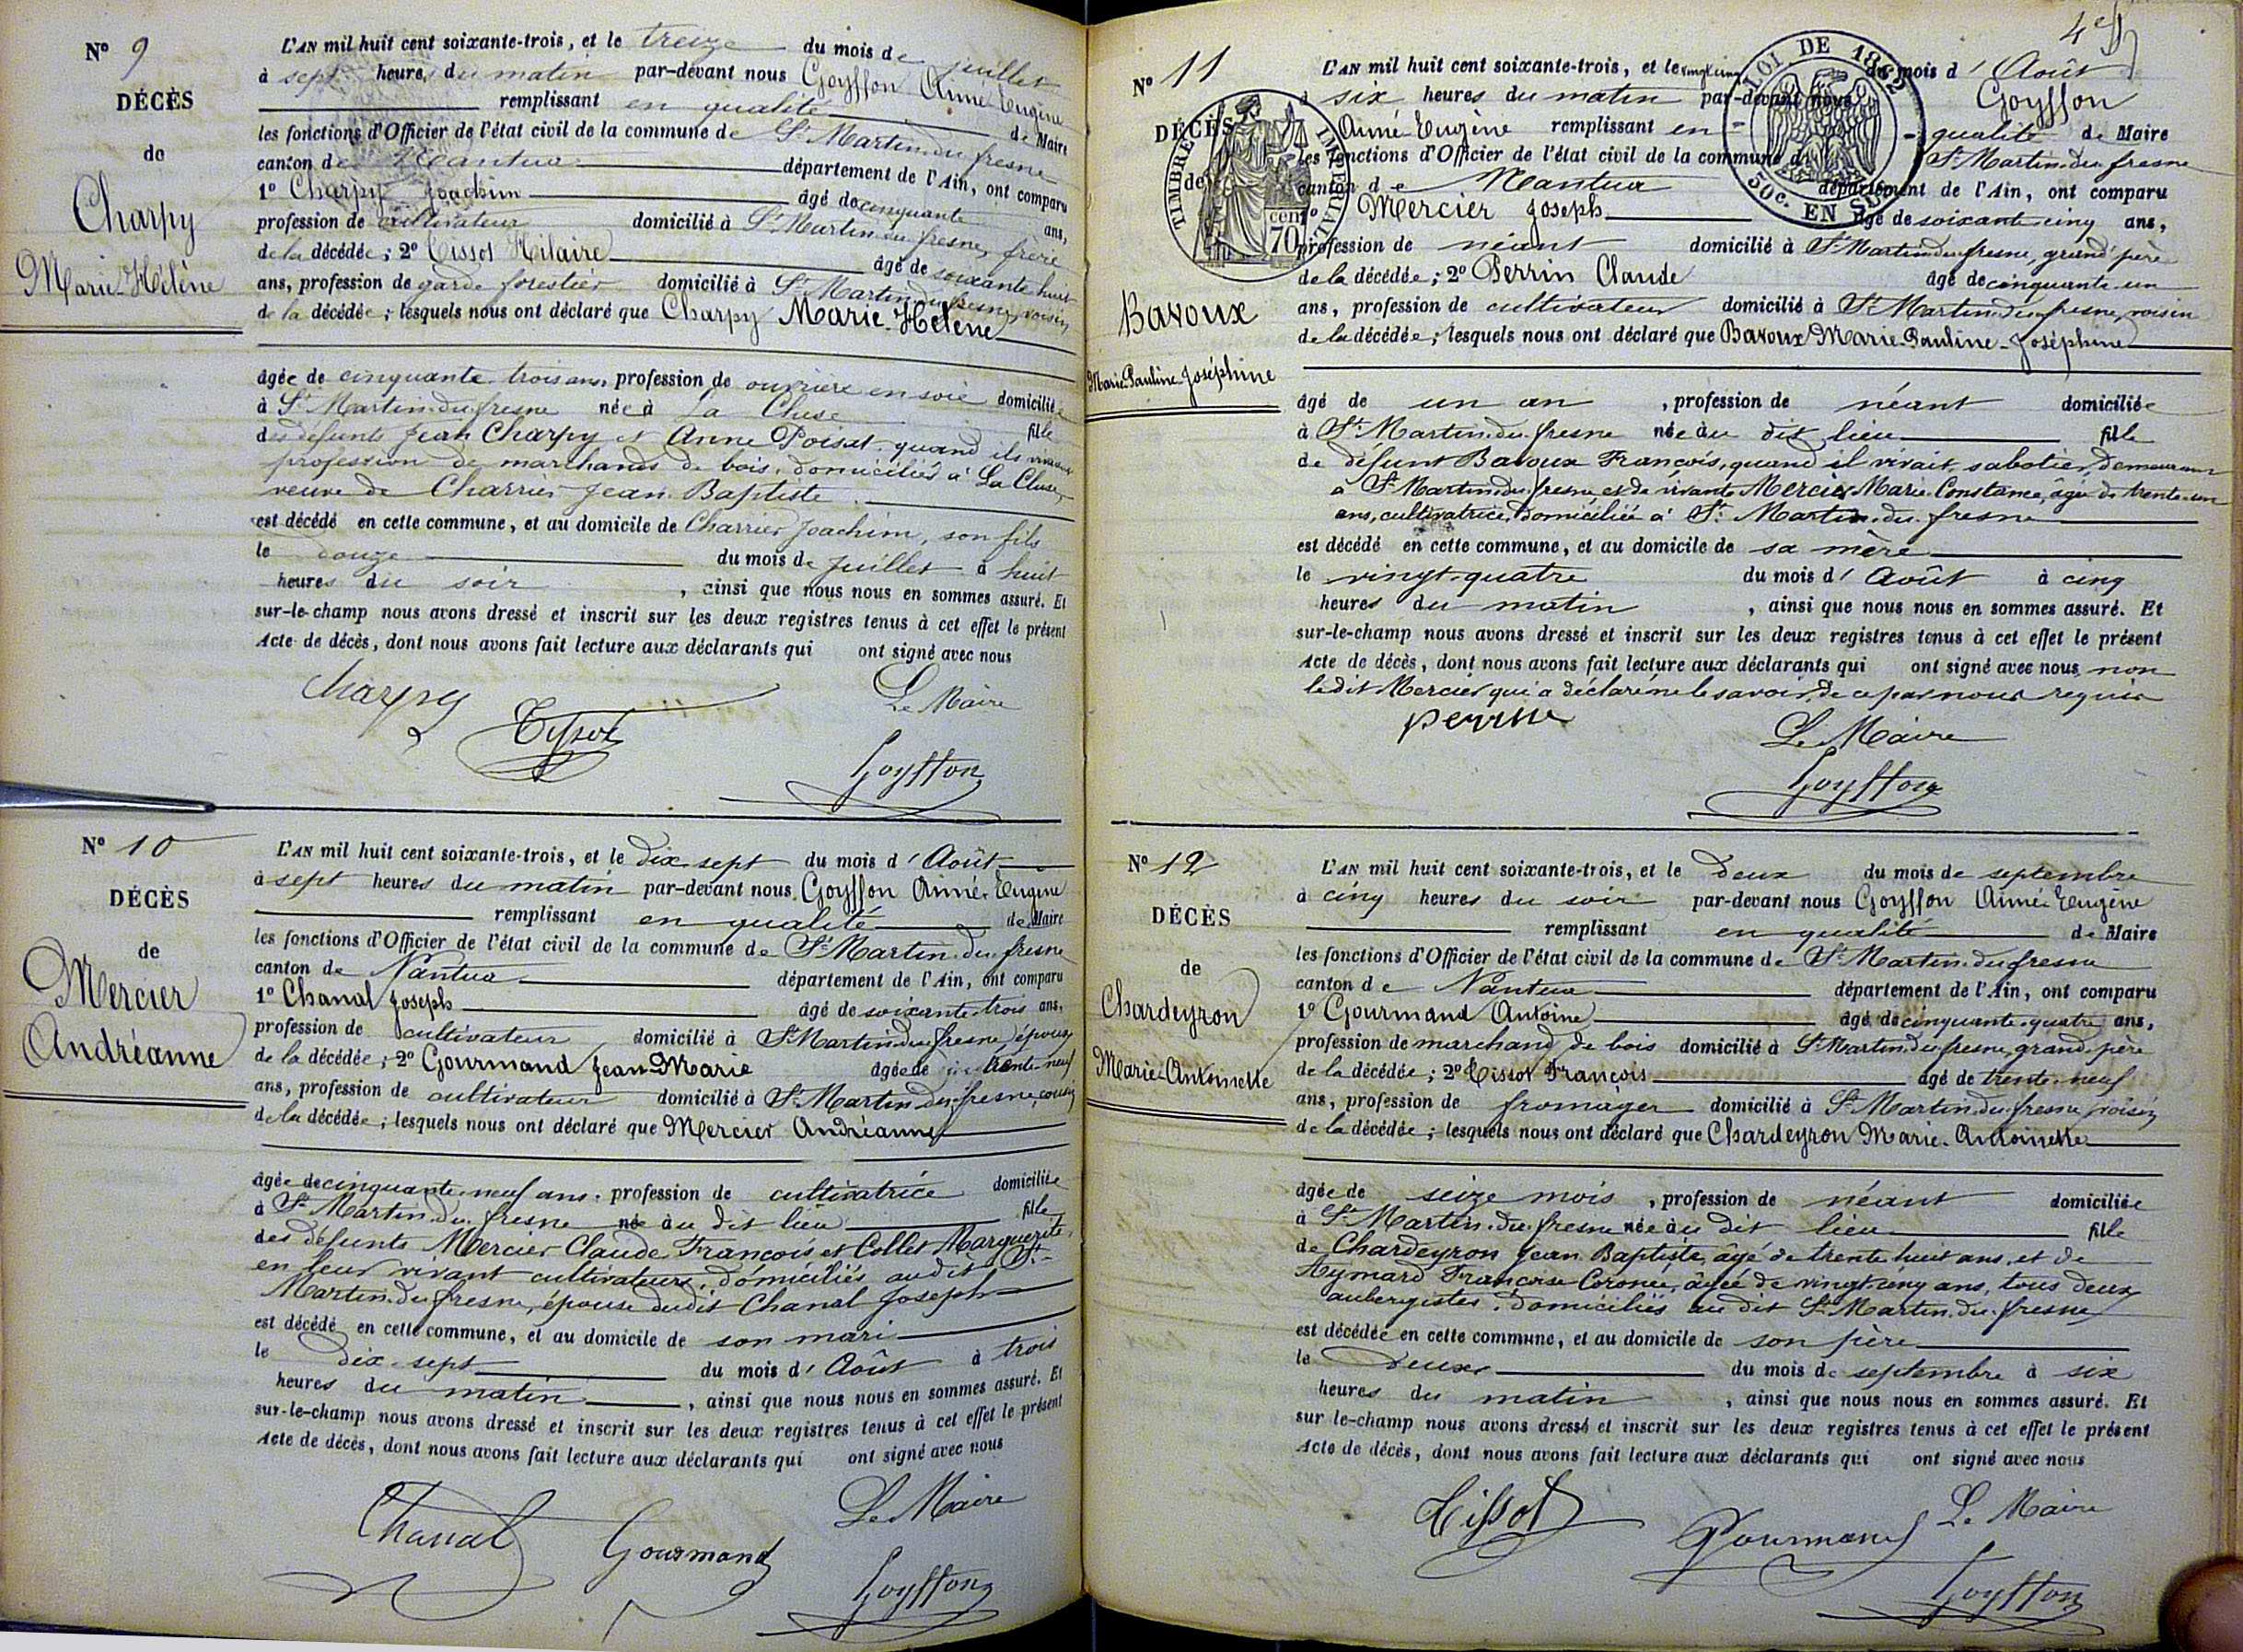 N° 9
DÉCÈS
de
Charpy
Marie-Hélène
L'AN mil huit cent soixante-trois, et le treize du mois de juillet
à sept heures du matin par-devant nous Goyffon Aimé Eugène
remplissant en qualité de Maire
les fonctions d'Officier de l'état civil de la commune de St Martin du fresne
canton de Nantua département de l'Ain, ont comparu
1° Charpy Joachim âgé de cinquante ans,
profession de cultivateur domicilié à St Martin du fresne, frère
de la décédée; 2° Tissot Hilaire âgé de soixante huit
ans, profession de garde forestier domicilié à St Martin du fresne, voisin
de la décédée; lesquels nous ont déclaré que Charpy Marie-Hélène
âgée de cinquante-trois ans, profession de ouvrière en soie domiciliée
à St Martin-du-fresne née à La Cluse fille
des défunts Jean Charpy et Anne Poisat quand ils vivaient
profession de marchands de bois, domiciliés à La Cluse,
veuve de Charrier Jean Baptiste
est décédé en cette commune, et au domicile de Charrier Joachim, son fils
le douze du mois de Juillet à huit
heures du soir, ainsi que nous nous en sommes assuré. Et
sur-le-champ nous avons dressé et inscrit sur les deux registres tenus à cet effet le présent
Acte de décès, dont nous avons fait lecture aux déclarants qui ont signé avec nous
Charpy Tissot Le Maire
Goyffon
N° 10
DÉCÈS
de
Mercier
Andréanne
L'AN mil huit cent soixante-trois, et le dix-sept du mois d'Août
à sept heures du matin par-devant nous Goyffon Aimé-Eugène
remplissant en qualité de Maire
les fonctions d'Officier de l'état civil de la commune de St Martin-du-fresne
canton de Nantua département de l'Ain, ont comparu
1° Chanal Joseph âgé de soixante-trois ans,
profession de cultivateur domicilié à St Martin du fresne, époux
de la décédée; 2° Gourmand Jean-Marie âgé de trente-neuf
ans, profession de cultivateur domicilié à St Martin du fresne, cousin
de la décédée; lesquels nous ont déclaré que Mercier Andréanne
âgée de cinquante-neuf ans, profession de cultivatrice domiciliée
à St Martin-du-fresne née au dit lieu fille
des défunts Mercier Claude François et Collet Marguerite,
en leur vivant cultivateurs, domiciliés audit St-
Martin-du-fresne, épouse dudit Chanal Joseph
est décédé en cette commune, et au domicile de son mari
le dix-sept du mois d'Août à trois
heures du matin, ainsi que nous nous en sommes assuré. Et
sur-le-champ nous avons dressé et inscrit sur les deux registres tenus à cet effet le présent
Acte de décès, dont nous avons fait lecture aux déclarants qui ont signé avec nous
Chanal Gourmand Le Maire
Goyffon
4e
N° 11
DÉCÈS
de
Bavoux
Marie-Pauline-Joséphine
TIMBRE IMPÉRIAL
70 cen
LOI DE 1862
50c. EN SUS
L'AN mil huit cent soixante-trois, et le vingt cinq du mois d'Août
à six heures du matin par-devant nous Goyffon
Aimé-Eugène remplissant en qualité de Maire
les fonctions d'Officier de l'état civil de la commune de St Martin-du-fresne
canton de Nantua département de l'Ain, ont comparu
1° Mercier Joseph âgé de soixante-cinq ans,
profession de néant domicilié à St Martin du fresne, grand'père
de la décédée; 2° Perrin Claude âgé de cinquante-un
ans, profession de cultivateur domicilié à St Martin-du-fresne, voisin
de la décédée; lesquels nous ont déclaré que Bavoux Marie-Pauline-Joséphine
âgé de un an, profession de néant domiciliée
à St Martin-du-fresne née au dit lieu fille
de défunt Bavoux François, quand il vivait, sabotier, demeurant
à St Martin du fresne, et de vivante Mercier Marie-Constance, âgée de trente-un
ans, cultivatrice, domiciliée à St Martin-du-fresne
est décédé en cette commune, et au domicile de sa mère
le vingt-quatre du mois d'Août à cinq
heures du matin, ainsi que nous nous en sommes assuré. Et
sur-le-champ nous avons dressé et inscrit sur les deux registres tenus à cet effet le présent
Acte de décès, dont nous avons fait lecture aux déclarants qui ont signé avec nous, non
le dit Mercier qui a déclaré ne le savoir, de ce par nous requis
perrin Le Maire
Goyffon
N° 12
DÉCÈS
de
Chardeyron
Marie-Antoinette
L'AN mil huit cent soixante-trois, et le deux du mois de septembre
à cinq heures du soir par-devant nous Goyffon Aimé-Eugène
remplissant en qualité de Maire
les fonctions d'Officier de l'état civil de la commune de St Martin-du-fresne
canton de Nantua département de l'Ain, ont comparu
1° Gourmand Antoine âgé de cinquante-quatre ans,
profession de marchand de bois domicilié à St Martin-du-fresne, grand-père
de la décédée; 2° Tissot François âgé de trente-neuf
ans, profession de fromager domicilié à St Martin-du-fresne, voisin
de la décédée; lesquels nous ont déclaré que Chardeyron Marie-Antoinette
âgée de seize mois, profession de néant domiciliée
à St Martin-du-fresne née au dit lieu fille
de Chardeyron Jean-Baptiste, âgé de trente-huit ans, et de
Aymard Françoise, âgée de vingt-cinq ans, tous deux
aubergistes, domiciliés au dit St Martin-du-fresne
est décédée en cette commune, et au domicile de son père
le deux du mois de septembre à six
heures du matin, ainsi que nous nous en sommes assuré. Et
sur le-champ nous avons dressé et inscrit sur les deux registres tenus à cet effet le présent
Acte de décès, dont nous avons fait lecture aux déclarants qui ont signé avec nous
Tissot Gourmand Le Maire
Goyffon